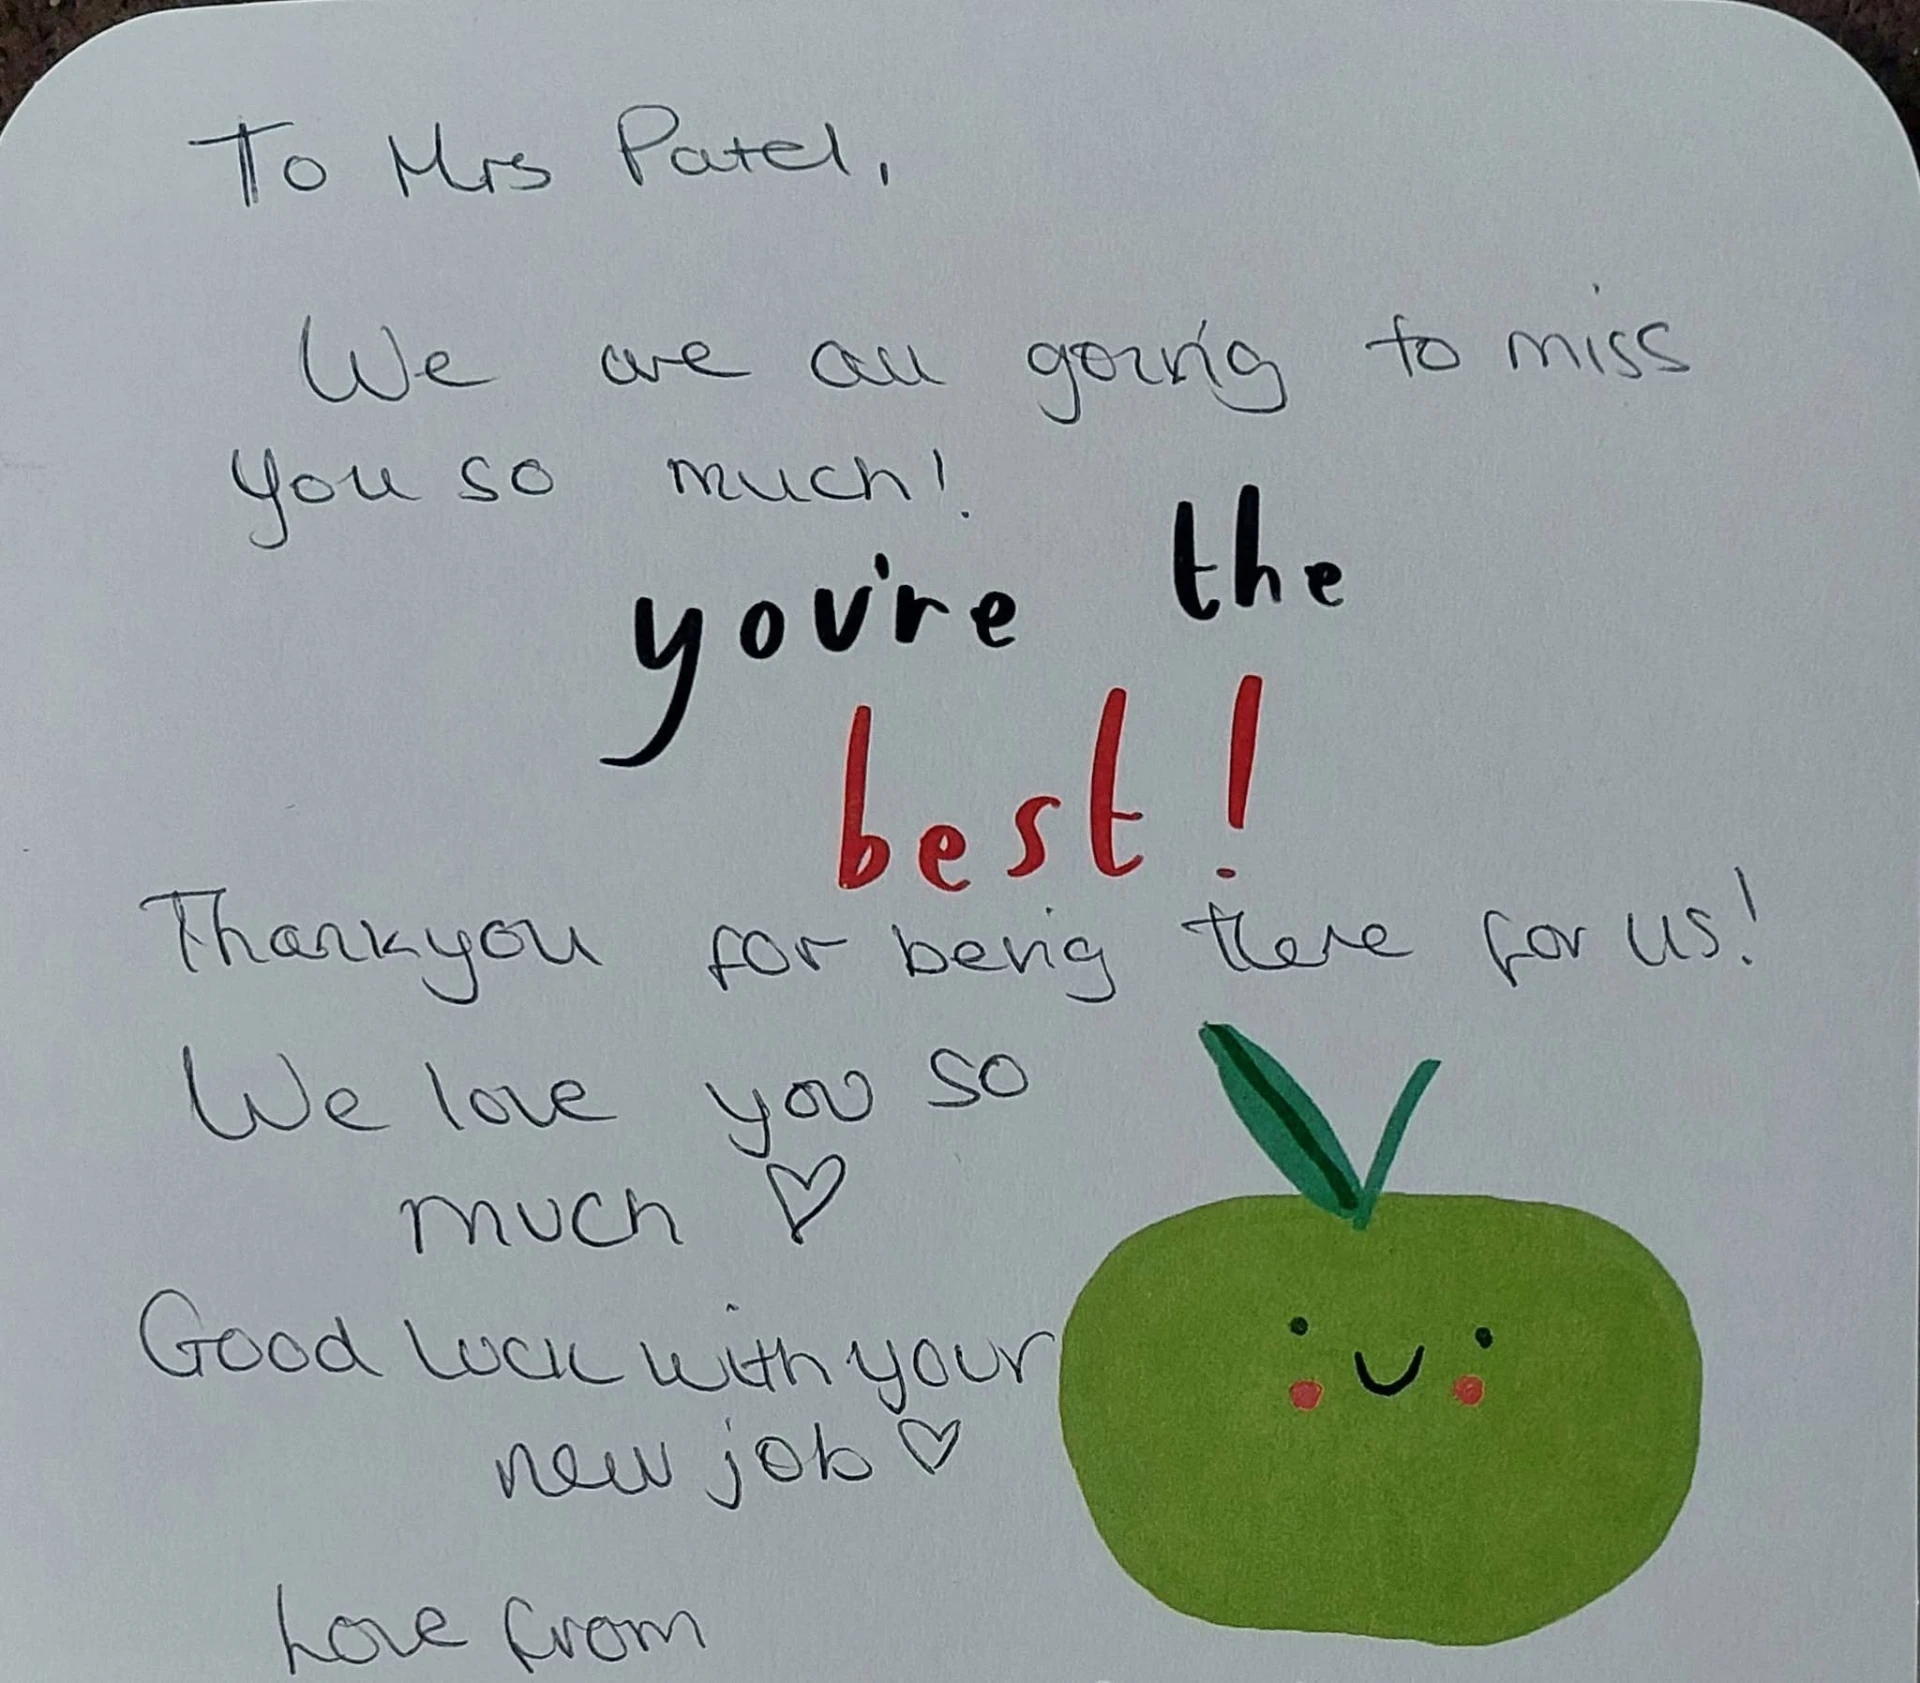 To Mrs Patel,
We are all going to miss
you so much!
you're the
best!
Thankyou for being there for us!
We love you so
much ♡
Good luck with your
new job ♡
Love from